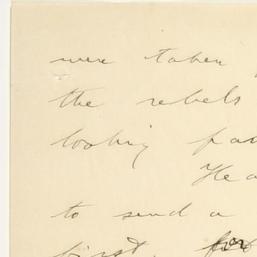 were taken
the rebels
looking
to send a
first, for